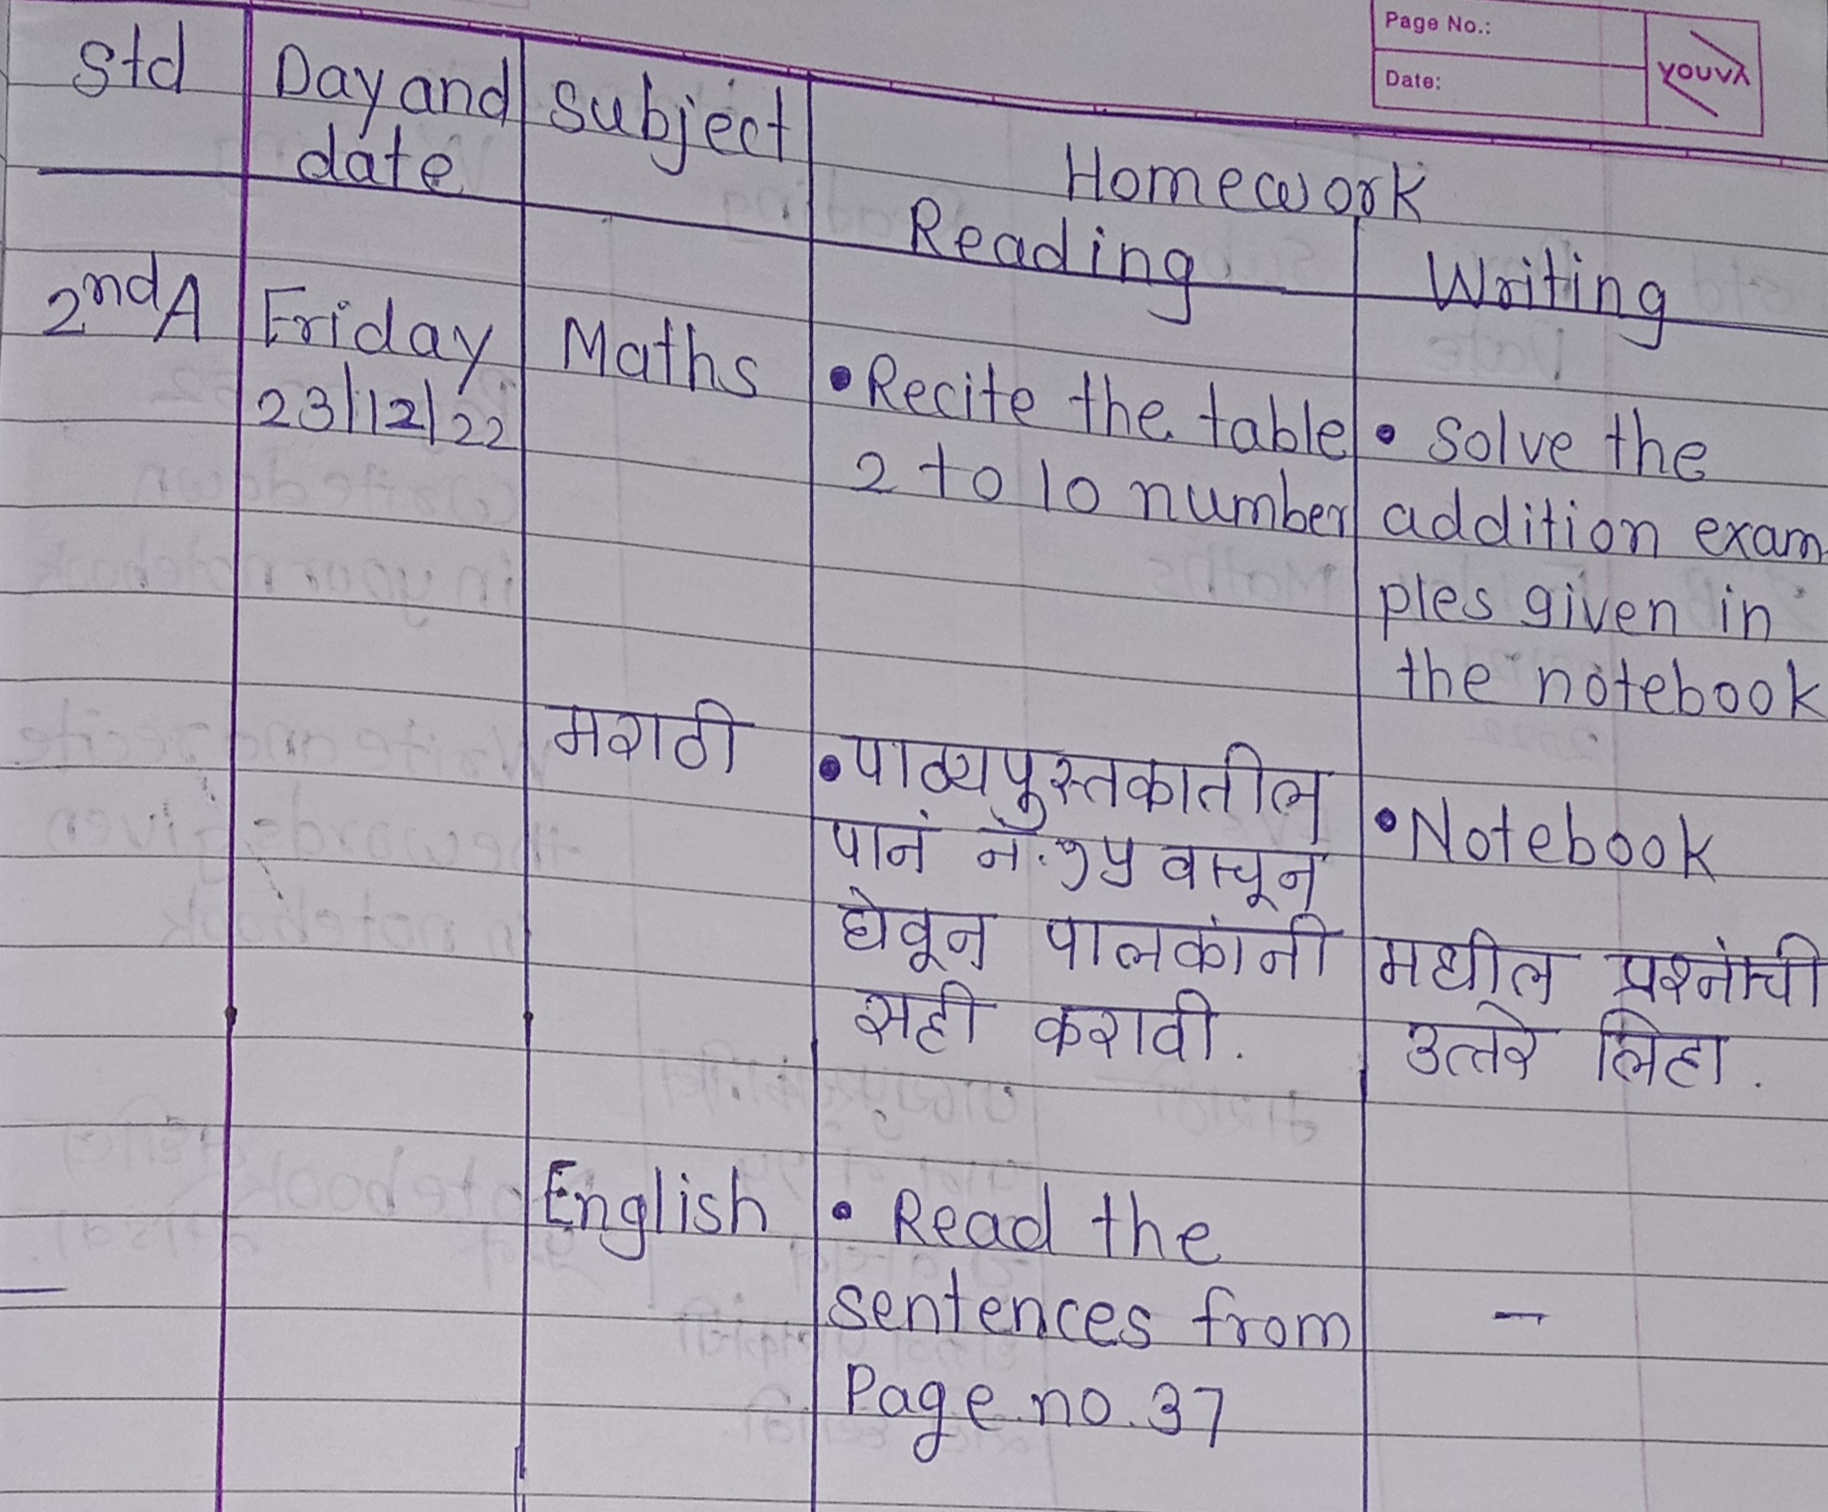 Page No.:
Date:
YOUVA
Std
Day and
date
Subject
Homework
Reading
Writing
2nd A
Friday
23/12/22
Maths
• Recite the table
2 to 10 number
• Solve the
addition exam
ples given in
the notebook
मराठी
• पाठ्यपुस्तकातील
पानं नं. ७५ वाचून
घेवून पालकांनी
सही करावी.
• Notebook
मधील प्रश्नांची
उत्तरे लिहा.
English
• Read the
sentences from
Page no. 37
—